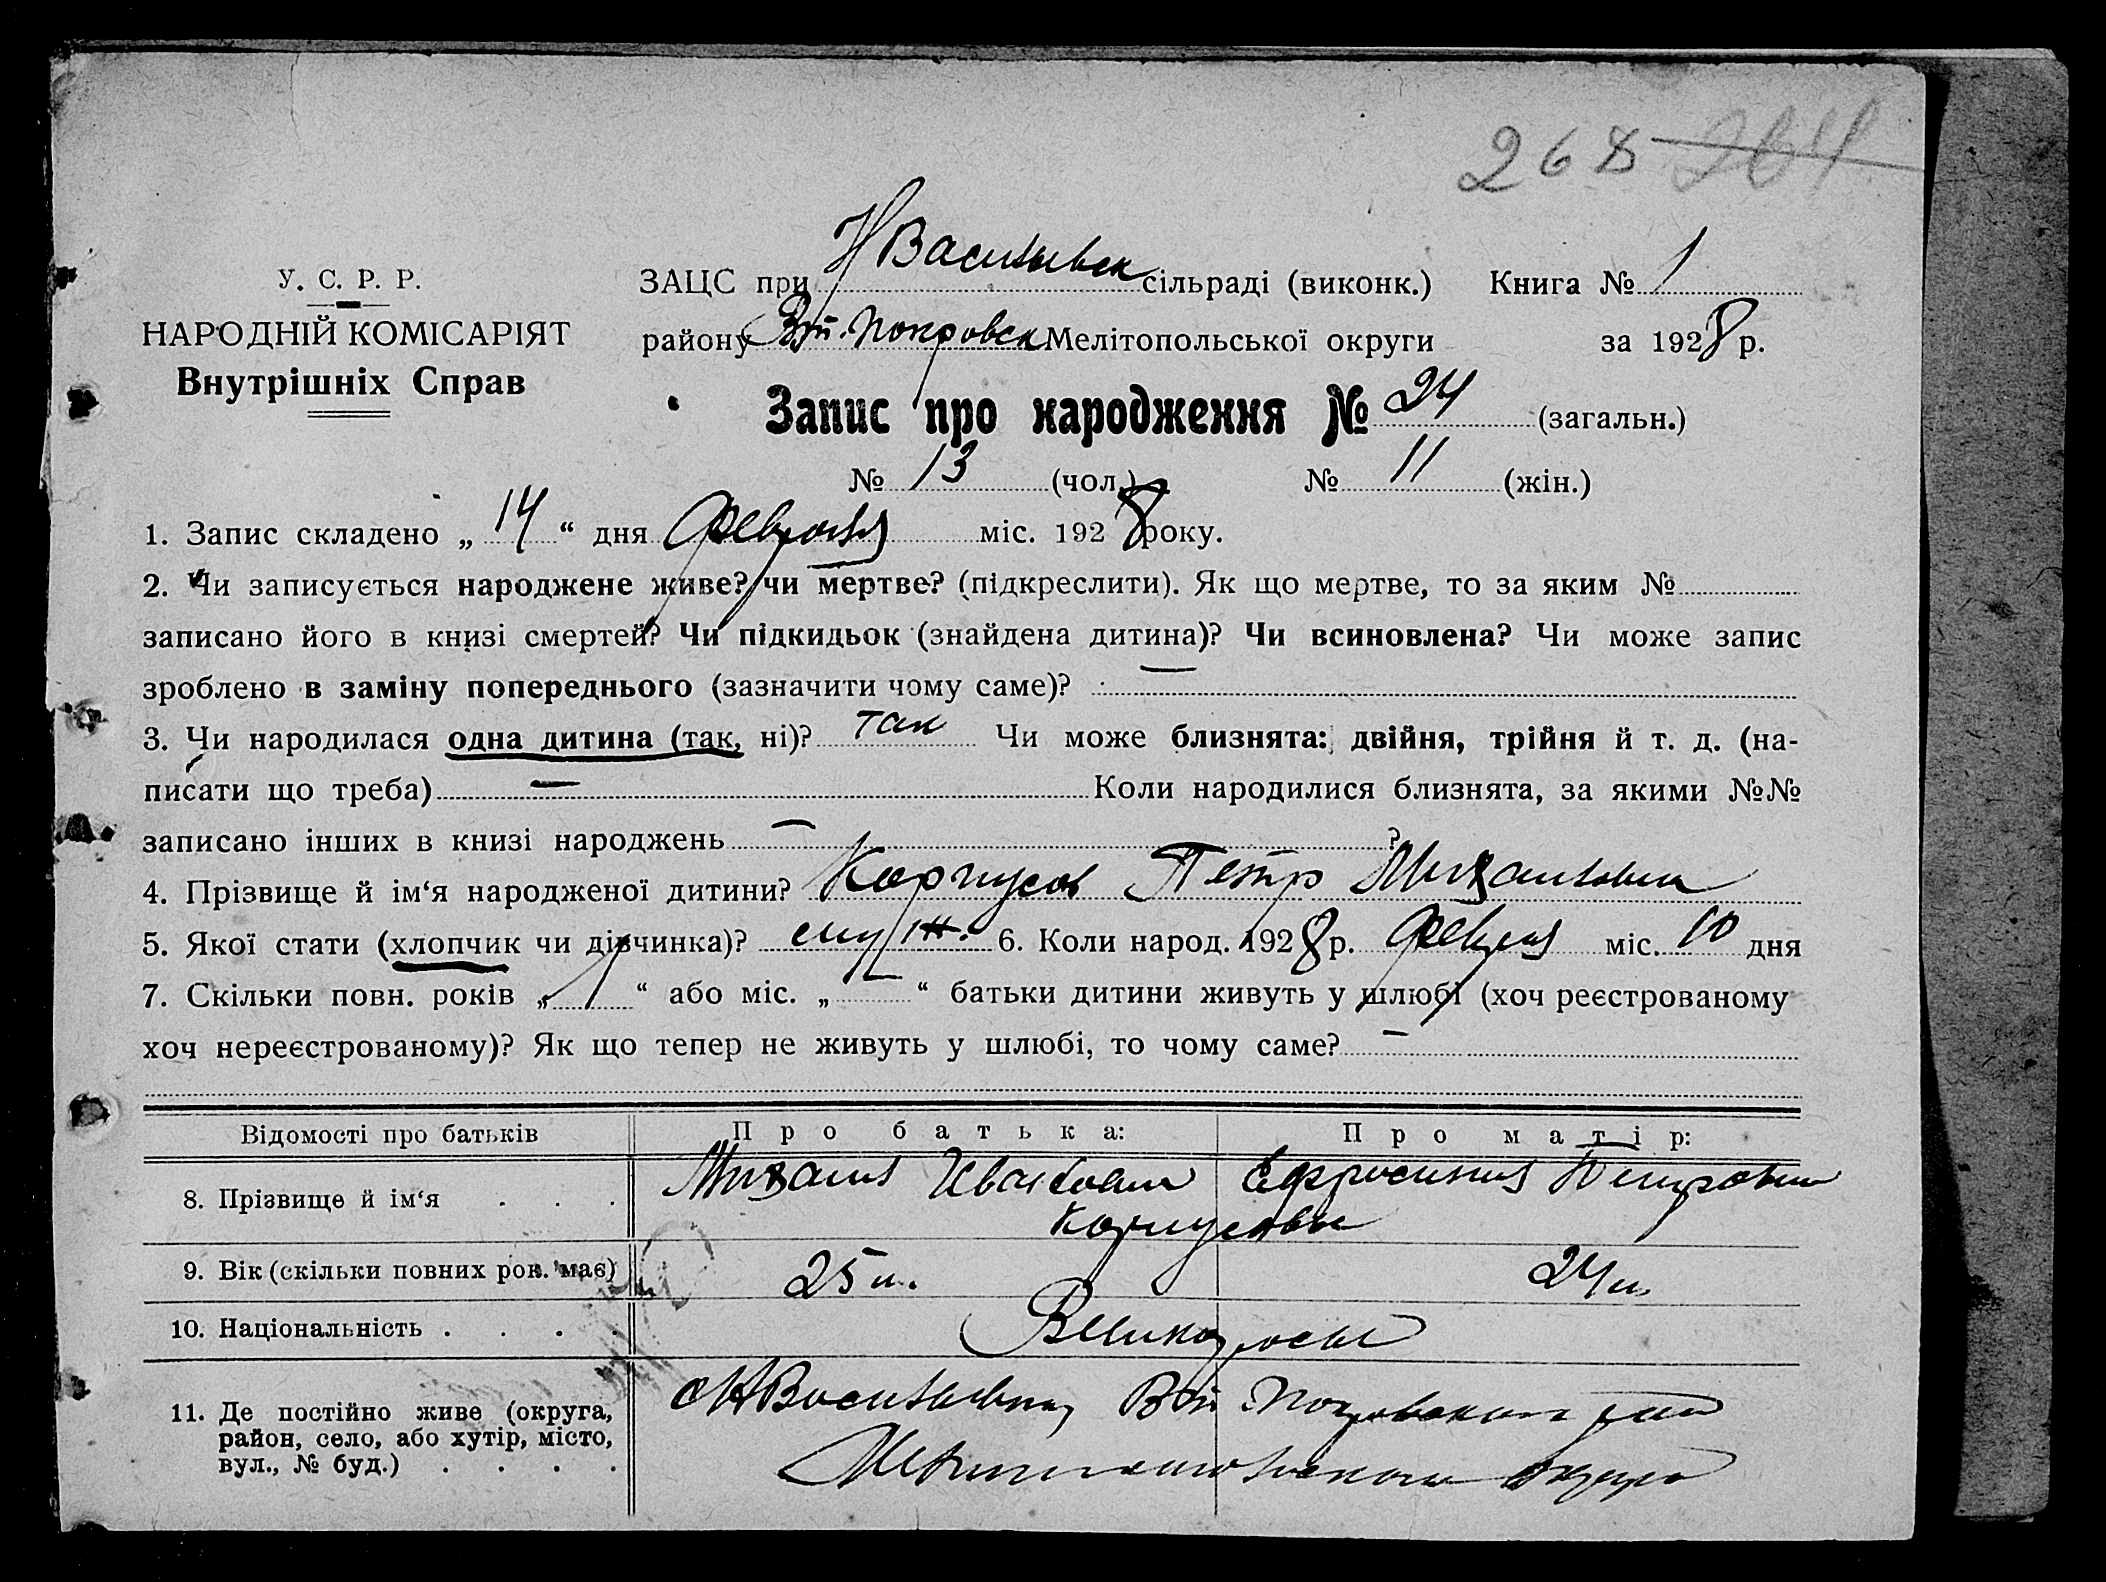 268 264
У. С. Р. Р.
НАРОДНІЙ КОМІСАРІЯТ
Внутрішніх Справ
ЗАЦС при Н Васильевск сільраді (виконк.) Книга № 1
району Вт. Покровск Мелітопольської округи за 1928 р.
Запис про народження № 24 (загальн.)
№ 13 (чол.) № 11 (жін.)
1. Запис складено „ 14 “ дня Февраля міс. 1928 року.
2. Чи записується народжене живе? чи мертве? (підкреслити). Як що мертве, то за яким №
записано його в книзі смертей? Чи підкидьок (знайдена дитина)? Чи всиновлена? Чи може запис
зроблено в заміну попереднього (зазначити чому саме)? —
3. Чи народилася одна дитина (так, ні)? так Чи може близнята: двійня, трійня й т. д. (на-
писати що треба) — Коли народилися близнята, за якими №№
записано інших в книзі народжень — ?
4. Прізвище й ім‘я народженої дитини? Корнусов Петр Михайлович
5. Якої стати (хлопчик чи дівчинка)? 6. Коли народ. 1928 р. Февраля міс. 10 дня
7. Скільки повн. років „ 1 “ або міс. „ — “ батьки дитини живуть у шлюбі (хоч реєстрованому
хоч нереєстрованому)? Як що тепер не живуть у шлюбі, то чому саме? —
Відомості про батьків Про батька: Про матір:
8. Прізвище й ім‘я . . . Михаил Иванович Ефросиния Петровна
Корнусовы
9. Вік (скільки повних рок. має) 25 л. 24 л.
10. Національність . . . . Великоросы
11. Де постійно живе (округа,
район, село, або хутір, місто,
вул., № буд.) . . . .
с Н Васильевка, Вт Покровского рай
Мелитопольского округа